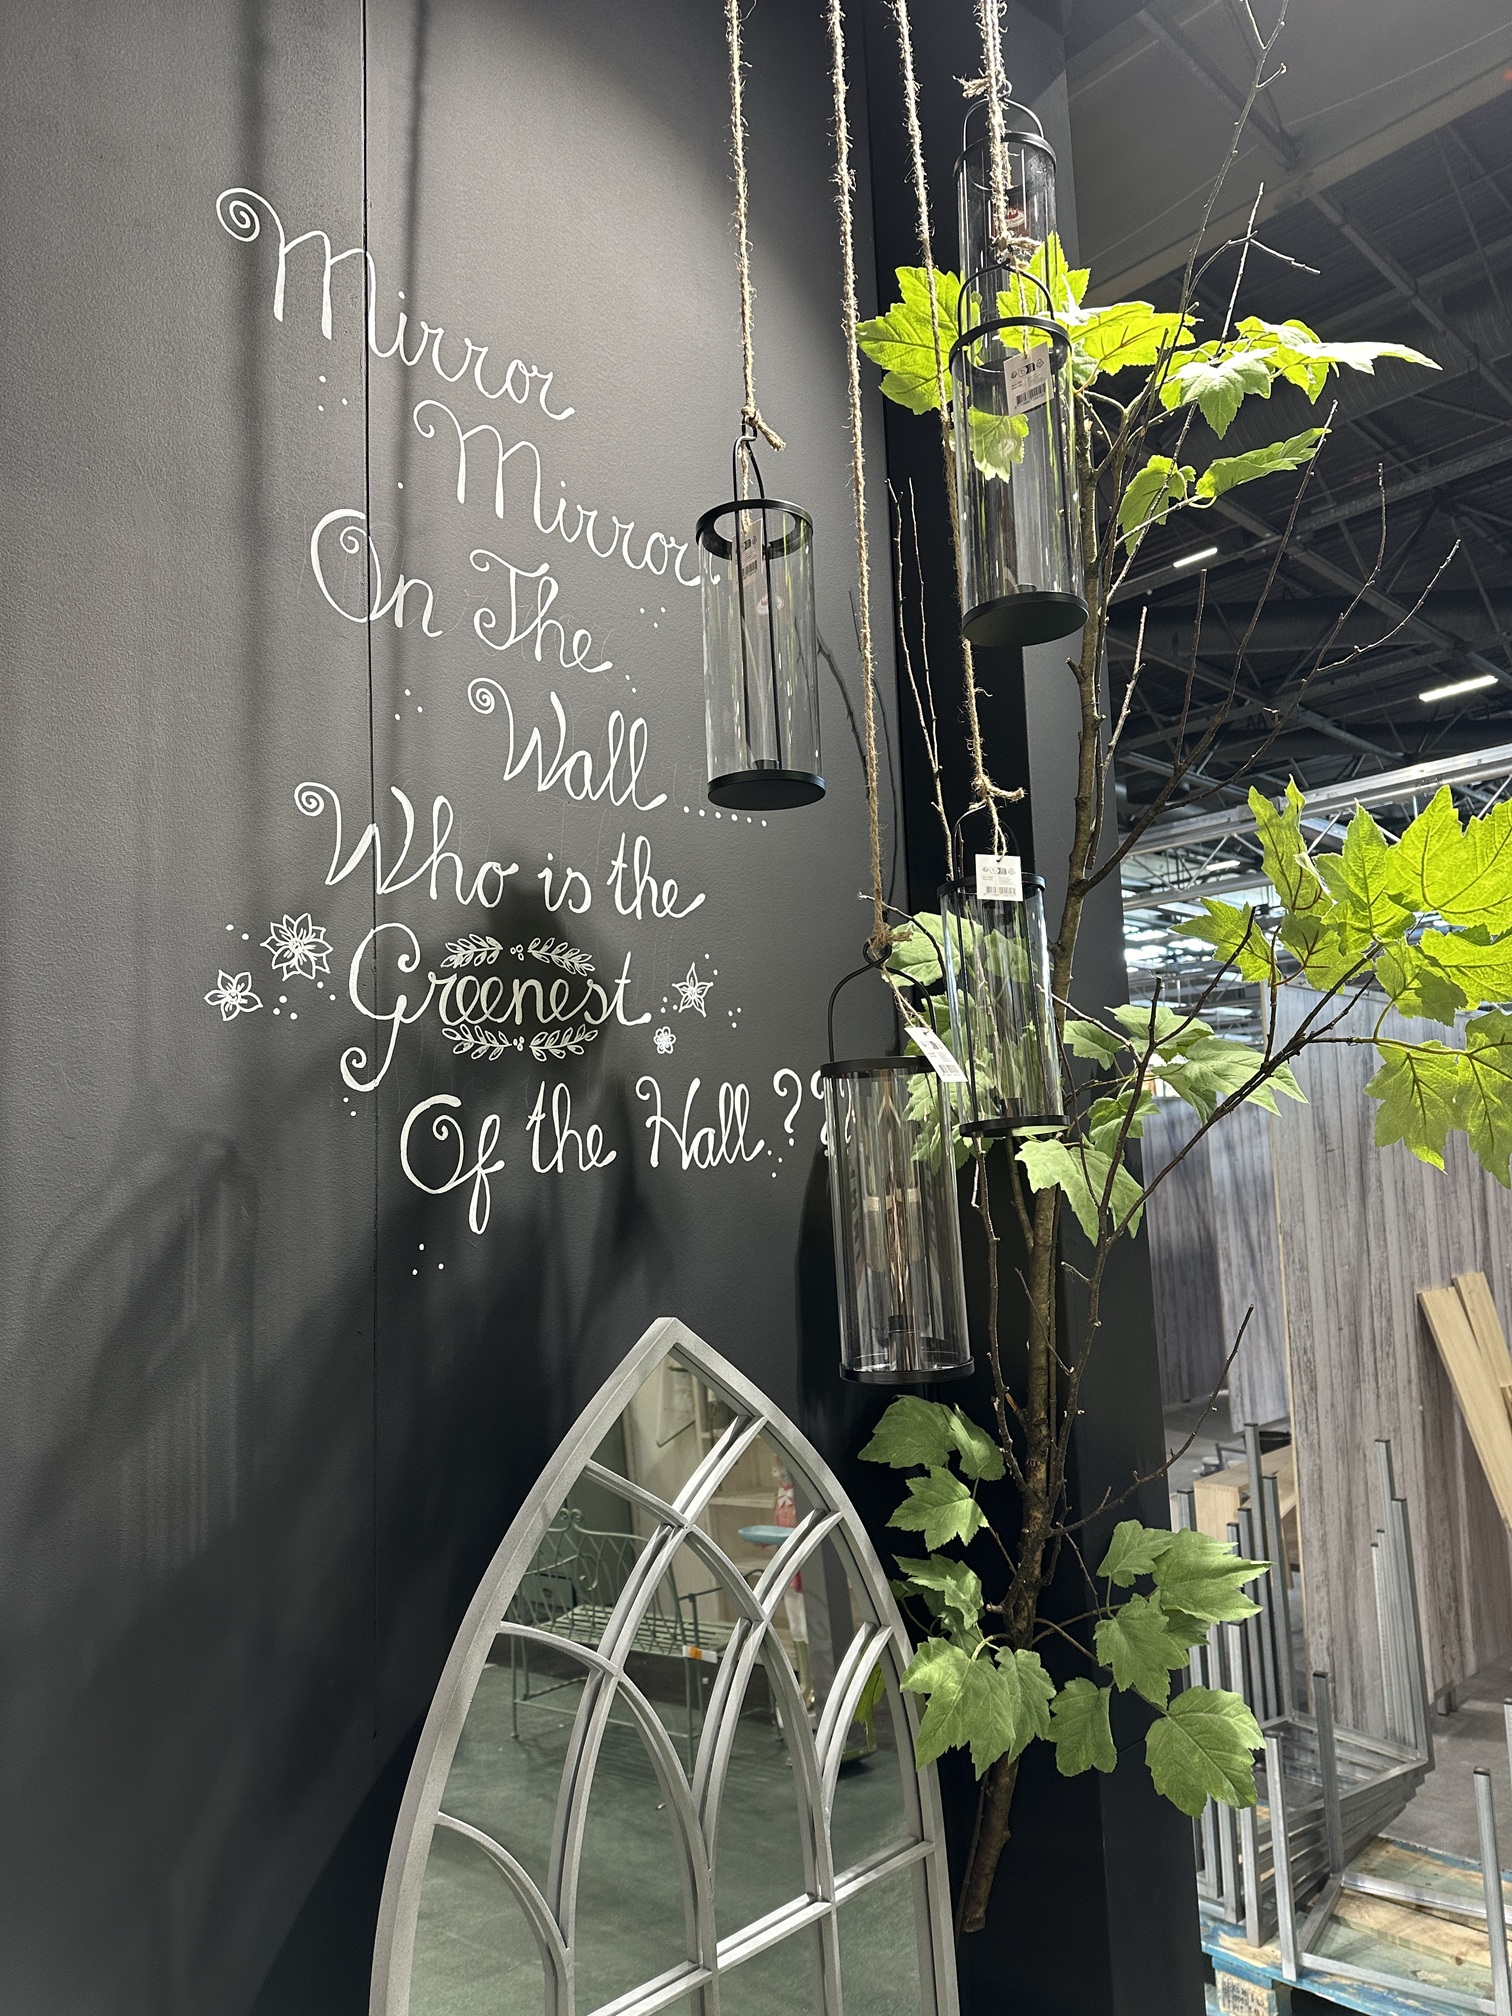 Mirror
Mirror..
On The
Wall.......
Who is the
Greenest
Of the Hall.???